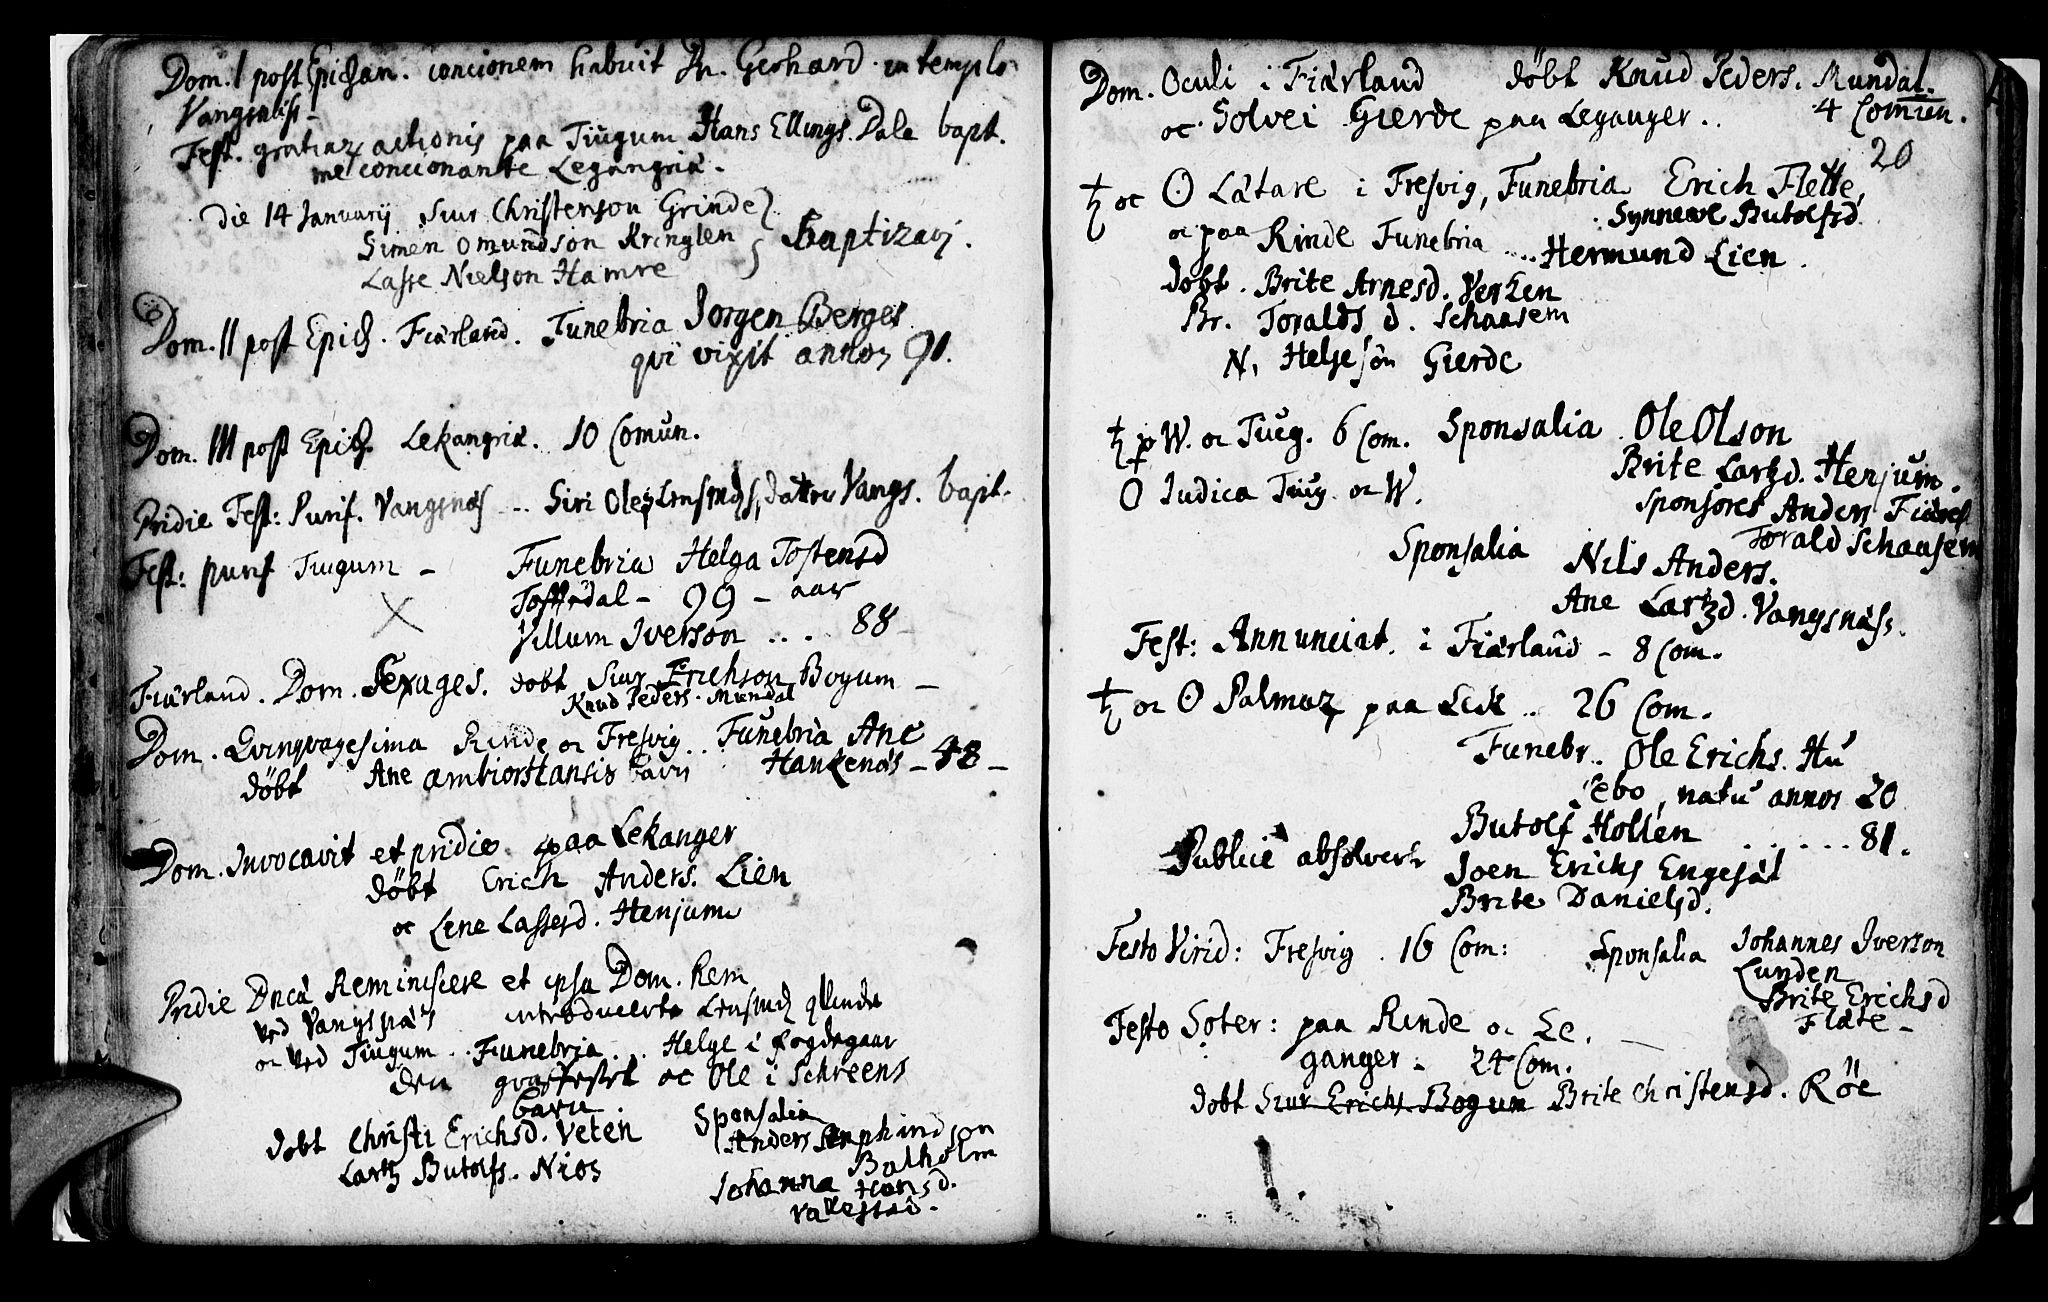 Dom. 1 post Epiphan. concionem habuit Dn. Gerhard in templo
Vangsnäss
Fest. gratiar. actionis paa Tiugum Hans Ellings. Dale bapt.
me concionante Legangriæ.
Die 14 Januarij Siur Christenson Grinde
Simen Omundson Kringlen
Baptizavj.
Lasse Nielson Hamre
Dom. II post Epiph. Fiärland. Funebria Jorgen Berges
qvi vixit annos 91.
Dom. III post Epiph. Lekangriæ. 10 Comun.
Pridie Fest: Purif. Vangsnäs .. Siri Oles datter Vangs. bapt.
Fest: purif Tiugum – Funebria Helga Tostensd
– 99 – aar
Villum Iverson .... 88
Fiärland. Dom. Sexages. dobt Siur Erichson Boyum –
Knud Peders. Mundal
Dom. Qvinqvagesima Rinde oc Fresvig .. Funebria Ane
döbt Ane barn Hankenäs – 48 –
Dom. Invocavit et pridie paa Lekanger
döbt Erich Anders. Lien
oc Lene Lassesd. Henjum
Pridie Dncä Reminiscere et ipsa Dom. Rem
ved Vangsnäs introducerte
oc ved Tiugum .. Funebria .. Helge i Fogdegaar
den oc Ole i Schreens
barn.
dobt Christi Erichsd. Veten
Sponsalia
Anders Amphindson
Lartz Butolfs. Nios
Balholm
Johanna Hansd.
Vallestad.
Dom. Oculi i Fiärland döbt Knud Peders. Mundal.
oc Solvei Gierde paa Leganger .. 4 Comun.
♄ oc ☉ Lätare i Fresvig, Funebria Erich Flette, 20
Synneve Butolfsd.
oc paa Rinde Funebria .... Hermund Lien.
döbt. Brite Arnesd. Verken
Br. Toralds d. Schaasem
N. Helgesön Gierde
♄ p W. oc Tiug. 6 Com. Sponsalia Ole Olson
Brite Lartzd. Henjum.
☉ Iudica Tiug. oc W.
Sponsores Anders
Torald Schaasem
Sponsalia Nils Anders.
Ane Lartzd. Vangsnäss.
Fest: Annunciat. i Fiärland – 8 Com.
♄ oc ☉ Palmar paa Lek .. 26 Com.
Funebr. Ole Erichs. Hu
sebo, natu annos 20
Butolf Hollen ...... 81.
Publice absolverte Joen Erichs Engesät
Brite Danielsd.
Festo Virid: Fresvig. 16 Com: Sponsalia Johannes Iverson
Lunden
Brite Erichsd
Fläte –
Festo Soter: paa Rinde oc Le
ganger – 24 Com.
dobt Siur Erichs. Bogum Brite Christensd. Röe